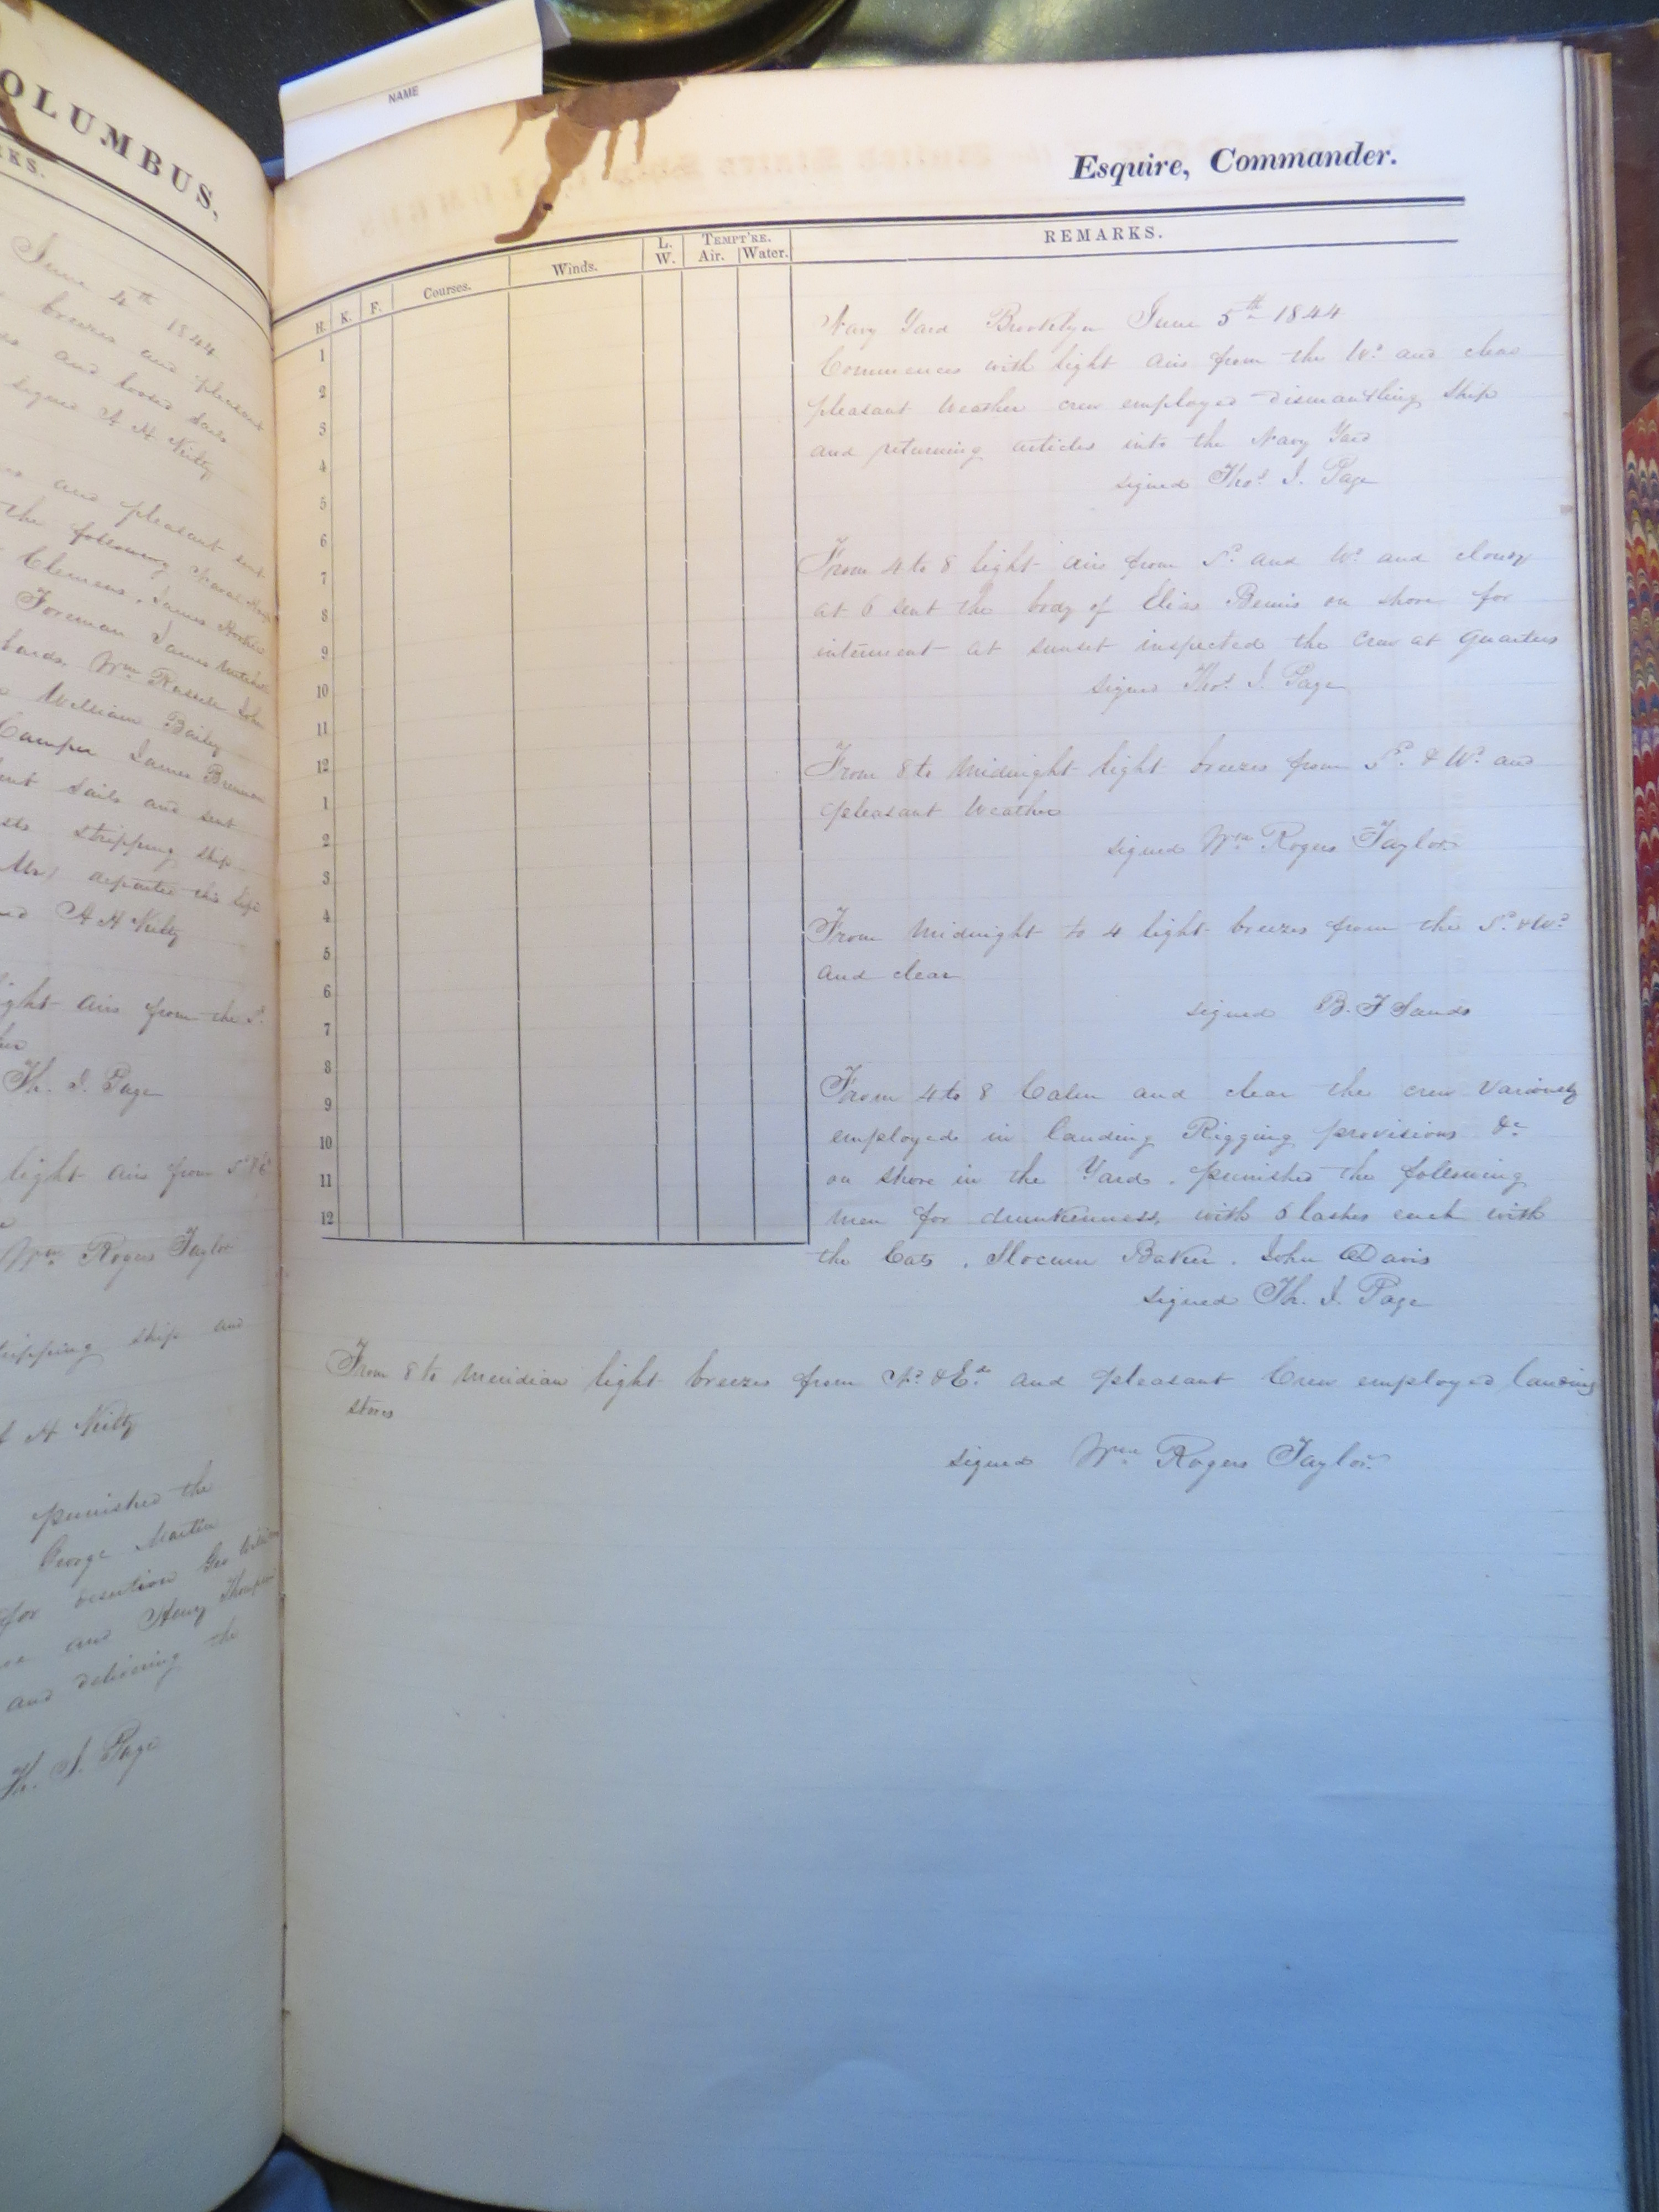 OLUMBUS,
RKS.
June 4th 1844
breezes and pleasant
and loosed sails
signed A H Kilty
and pleasant sent
the following Naval
Clemens, James
Foreman James
Wm Russell John
William Bailey
Camper James Brennan
sails and sent
stripping ship
departed this life
A H Kilty
light airs from the Sd
Th. J. Page
light airs from
Wm Rogers Taylor
stripping ship and
A H Kilty
punished the
George Martin
for desertion Geo
and Henry Thompson
and the
Th. J. Page
NAME
Esquire, Commander.
H. K. F. Courses. Winds. L. W. TEMPT'RE. Air. Water. REMARKS.
1
2
3
4
5
6
7
8
9
10
11
12
1
2
3
4
5
6
7
8
9
10
11
12
Navy Yard Brooklyn June 5th 1844
Commences with light airs from the Wd and clear
pleasant weather crew employed dismantling ship
and returning articles into the Navy Yard
signed Thos. J. Page
From 4 to 8 light airs from Sd and Wd and cloudy
at 6 sent the body of Elias Bemis on shore for
interment at sunset inspected the crew at quarters
signed Thos. J. Page
From 8 to Midnight light breezes from Sd. & Wd. and
pleasant weather
signed Wm. Rogers Taylor
From Midnight to 4 light breezes from the Sd. & Wd.
and clear
signed B. F Sands
From 4 to 8 Calm and clear the crew variously
employed in landing Rigging provisions &c
on shore in the Yard, punished the following
men for drunkenness, with 6 lashes each with
the Cats, Slocum Baker, John Davis
signed Th. J. Page
From 8 to Meridian light breezes from Nd. & Ed. and pleasant Crew employed landing
stores
signed Wm Rogers Taylor